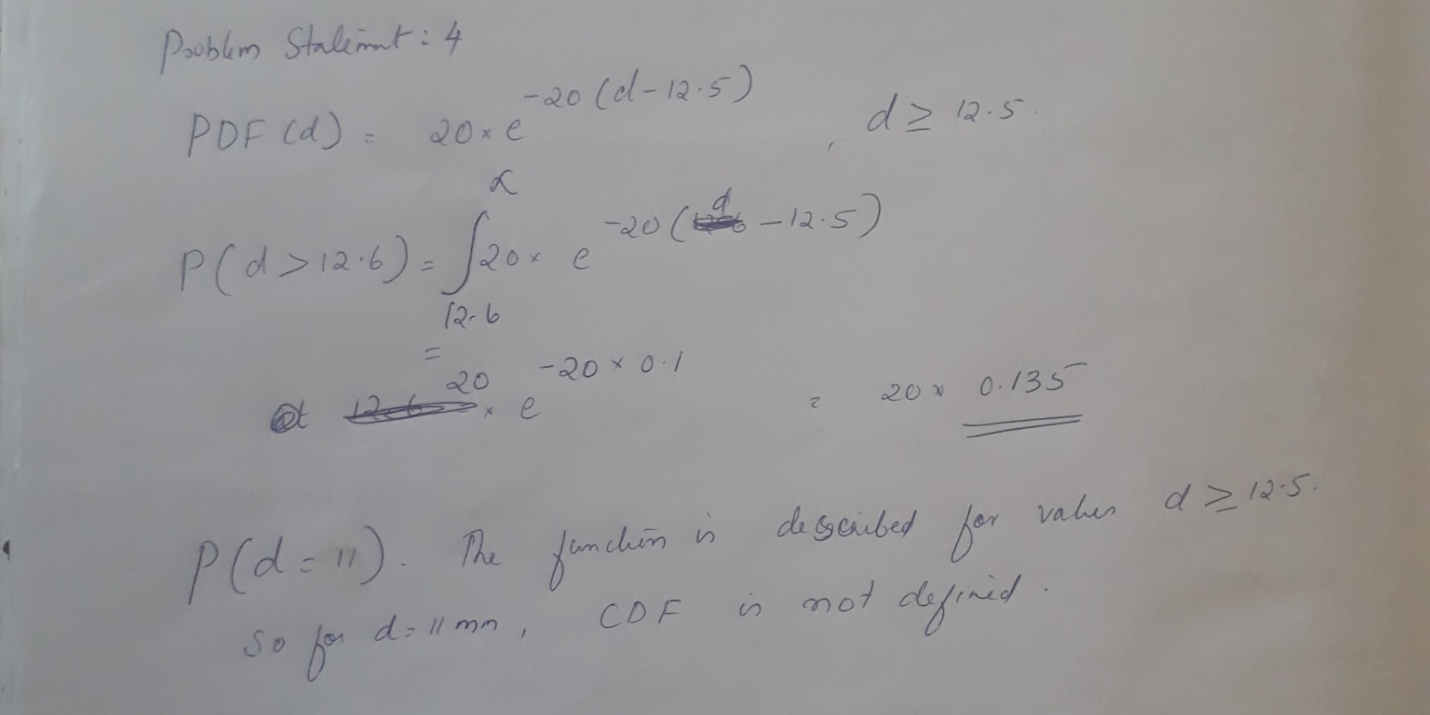 Problem Statement : 4
PDF (d) = 20 × e^{-20 (d-12.5)} , d ≥ 12.5.
P(d > 12.6) = ∫_{12.6}^{α} 20 × e^{-20 (d - 12.5)}
=
20 × e^{-20 × 0.1} = 20 × 0.135
P(d = 11). The function is described for values d ≥ 12.5.
So for d = 11 mm, CDF is not defined.